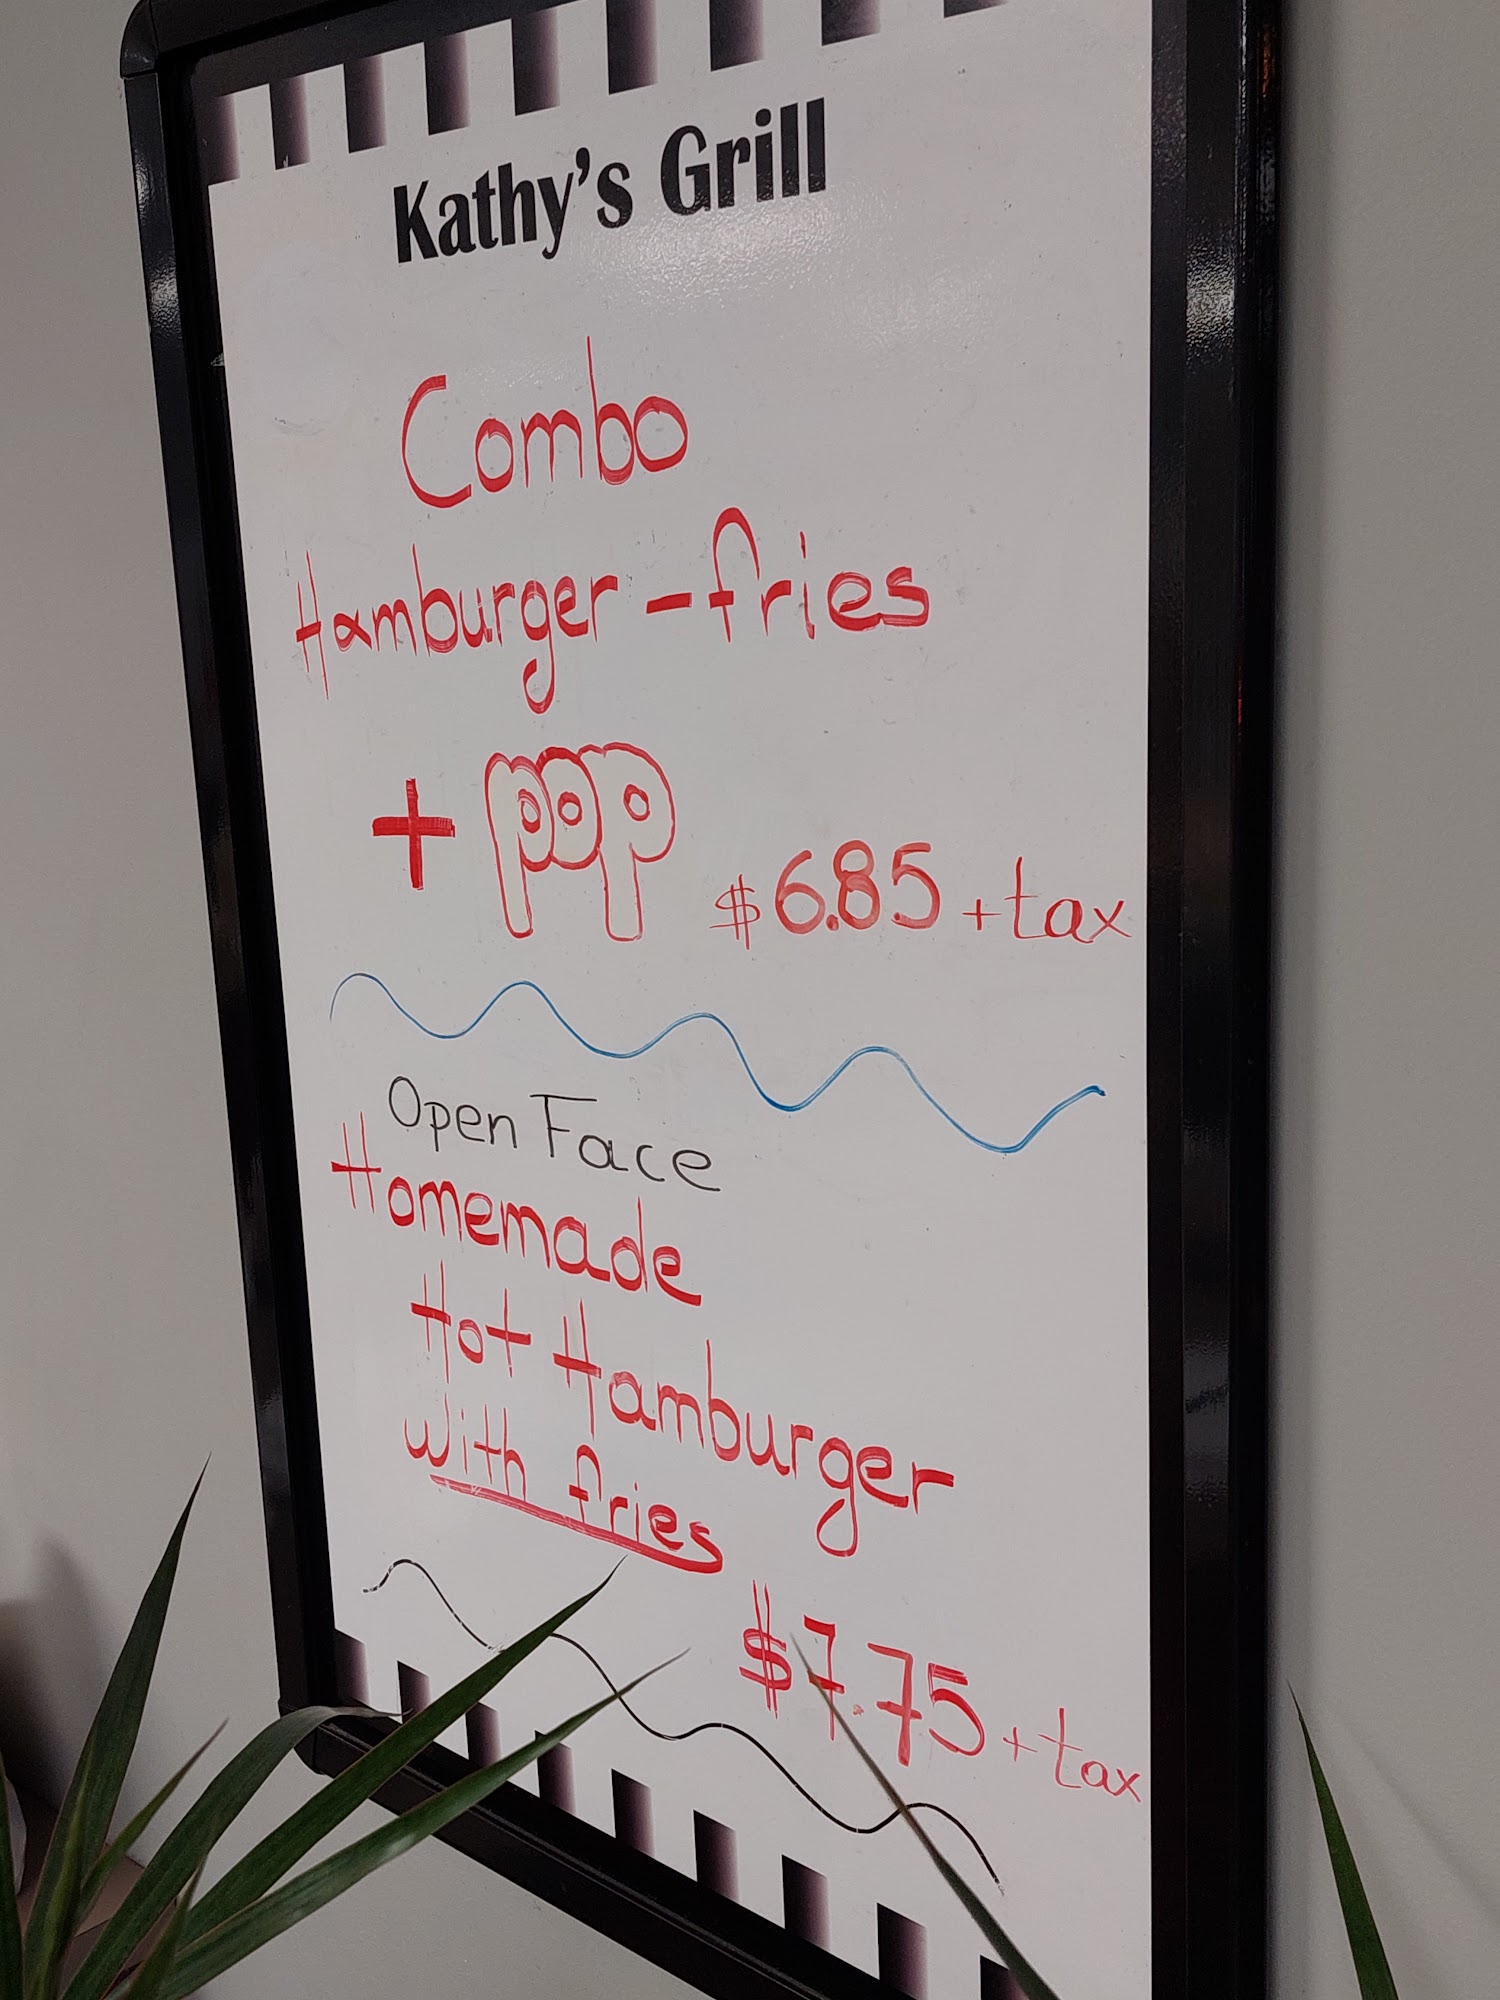 Kathy's Grill
Combo
Hamburger - fries
+ pop $6.85 + tax
Open Face
Homemade
Hot Hamburger
with fries
$7.75 + tax